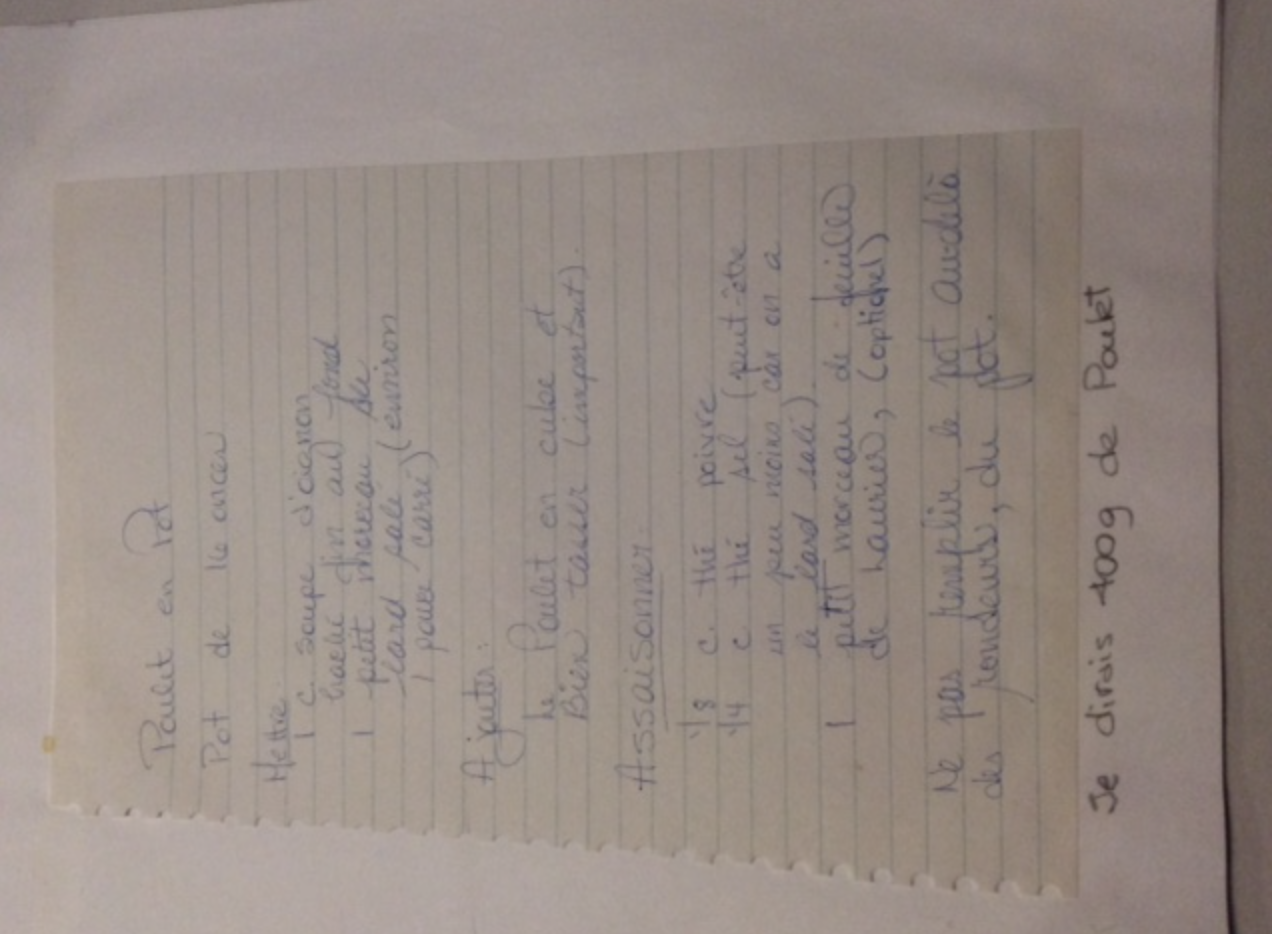 Poulet en Pot
Pot de 16 onces
Mettre
1 c. soupe d'oignon
haché fin au fond
1 petit morceau de
lard salé (environ
1 pouce carré)
Ajouter:
Le Poulet en cube et
Bien tasser (important).
Assaisonner
1/8 c. thé poivre
1/4 c thé sel (peut-être
un peu moins car on a
le lard salé)
1 petit morceau de feuille
de Laurier, (optionel)
Ne pas remplir le pot audelà
des rondeurs, du pot.
Je dirais 400g de Poulet